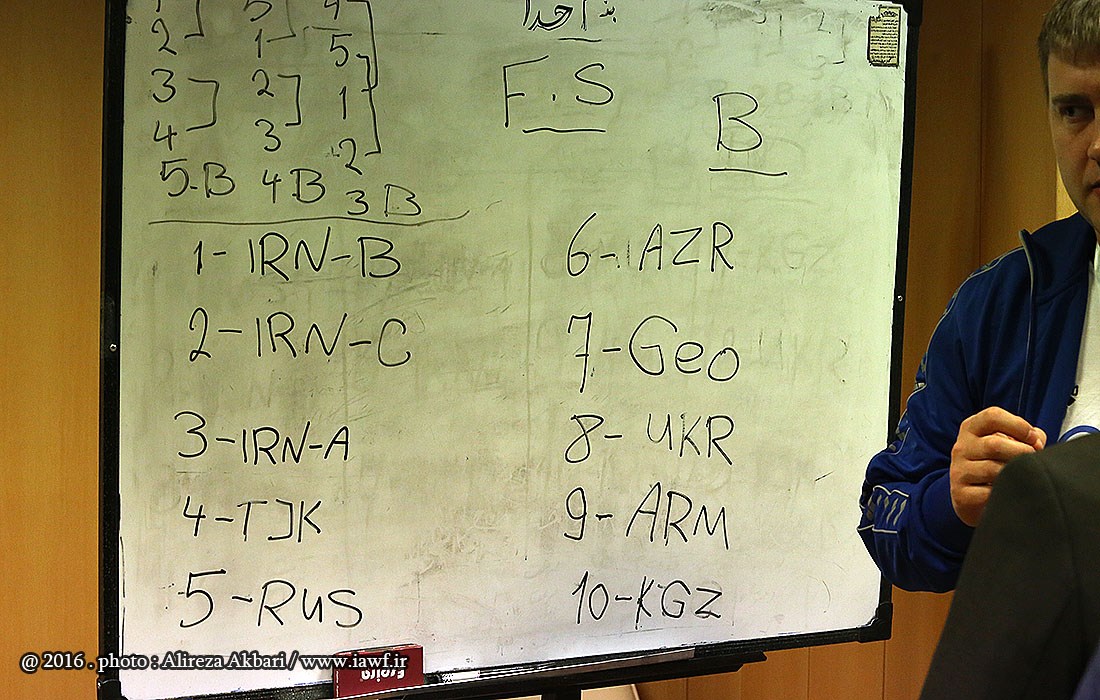 2 1 5
3 2 1
4 3 2
5.B 4B 3B
F.S
B
1-IRN-B
2-IRN-C
3-IRN-A
4-TJK
5-RUS
6-AZR
7-Geo
8-UKR
9-ARM
10-KGZ
@ 2016 . photo : Alireza Akbari / www.iawf.ir